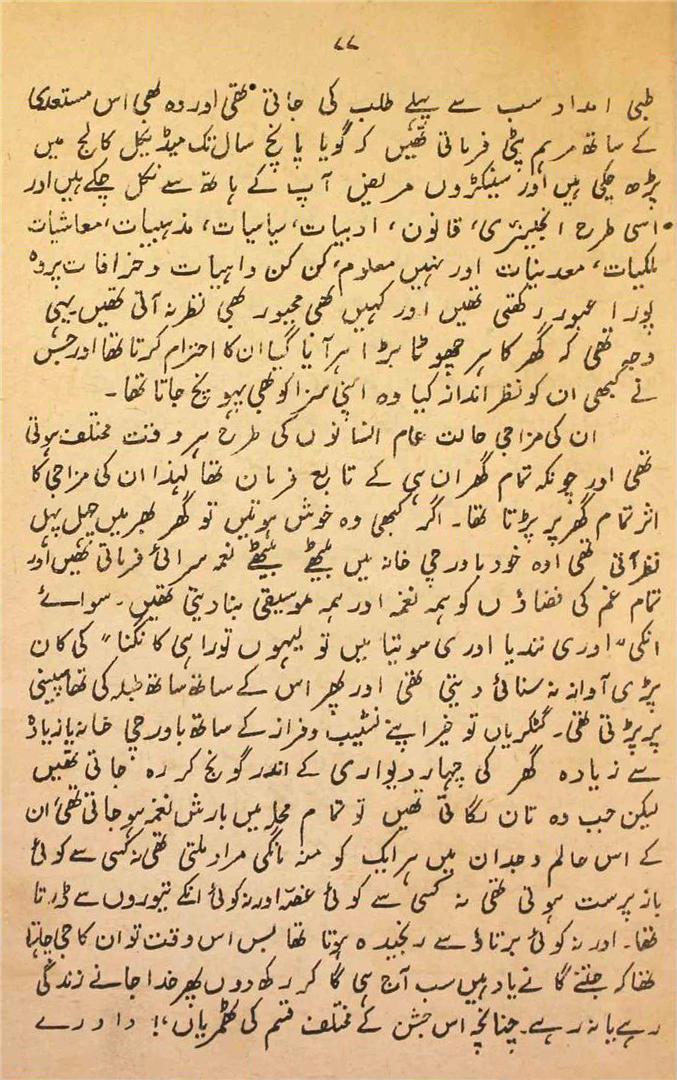 ۷۷
طبی امداد سب سے پہلے طلب کی جاتی تھی اور وہ بھی اس مستعدی
کے ساتھ مرہم پٹی فرماتی تھیں کہ گویا پانچ سال تک میڈیکل کالج میں
پڑھ چکی ہیں اور سینکڑوں مریض آپ کے ہاتھ سے نکل چکے ہیں اور
اسی طرح انجینئری، قانون، ادبیات، سیاسیات، مذہبیات، معاشیات
ملکیات، معدنیات اور نہیں معلوم کن کن واہیات و خرافات پر وہ
پورا عبور رکھتی تھیں اور کہیں بھی مجبور بھی نظر نہ آتی تھیں۔ یہی
وجہ تھی کہ گھر کا ہر چھوٹا بڑا ہر آیا گیا ان کا احترام کرتا تھا اور جس
نے کبھی ان کو نظر انداز کیا وہ اپنی سزا کو بھی پہونچ جاتا تھا۔
ان کی مزاجی حالت عام انسانوں کی طرح ہر وقت مختلف ہوتی
تھی اور چونکہ تمام گھر ان ہی کے تابع فرمان تھا لہٰذا ان کی مزاجی کا
اثر تمام گھر پر پڑتا تھا۔ اگر کبھی وہ خوش ہوتیں تو گھر بھر میں چہل پہل
نظر آتی تھی اوہ خود باورچی خانہ میں بیٹھے بیٹھے نغمہ سرائی فرماتی تھیں اور
تمام غم کی فضاؤں کو ہمہ نغمہ اور ہمہ موسیقی بنا دیتی تھیں۔ سوائے
انکی "اوری نندیا اوری موتیا میں تو لیہوں توراہی کا نگنا" کی کان
پڑی آواز نہ سنائی دیتی تھی اور پھر اس کے ساتھ ساتھ طبلہ کی تھاپ پتیلی
پر پڑتی تھی۔ گٹکریاں تو خیر اپنے نشیب و فراز کے ساتھ باورچی خانہ یا زیادہ
سے زیادہ گھر کی چہار دیواری کے اندر گونج کر رہ جاتی تھیں
لیکن جب وہ تان لگاتی تھیں تو تمام محلہ میں بارش نغمہ ہو جاتی تھی ان
کے اس عالم وجدان میں ہر ایک کو منہ مانگی مراد ملتی تھی نہ کسی سے کوئی
باز پرست ہوتی تھی نہ کسی سے کوئی غصہ اور نہ کوئی انکے تیوروں سے ڈرتا
تھا۔ اور نہ کوئی برتاؤ سے رنجیدہ ہوتا تھا بس اس وقت تو ان کا جی چاہتا
تھا کہ جتنے گانے یاد ہیں سب آج ہی گا کر رکھ دوں پھر خدا جانے زندگی
رہے یا نہ رہے۔ چنانچہ اس جشن کے مختلف قسم کی ٹھمریاں، دادرے